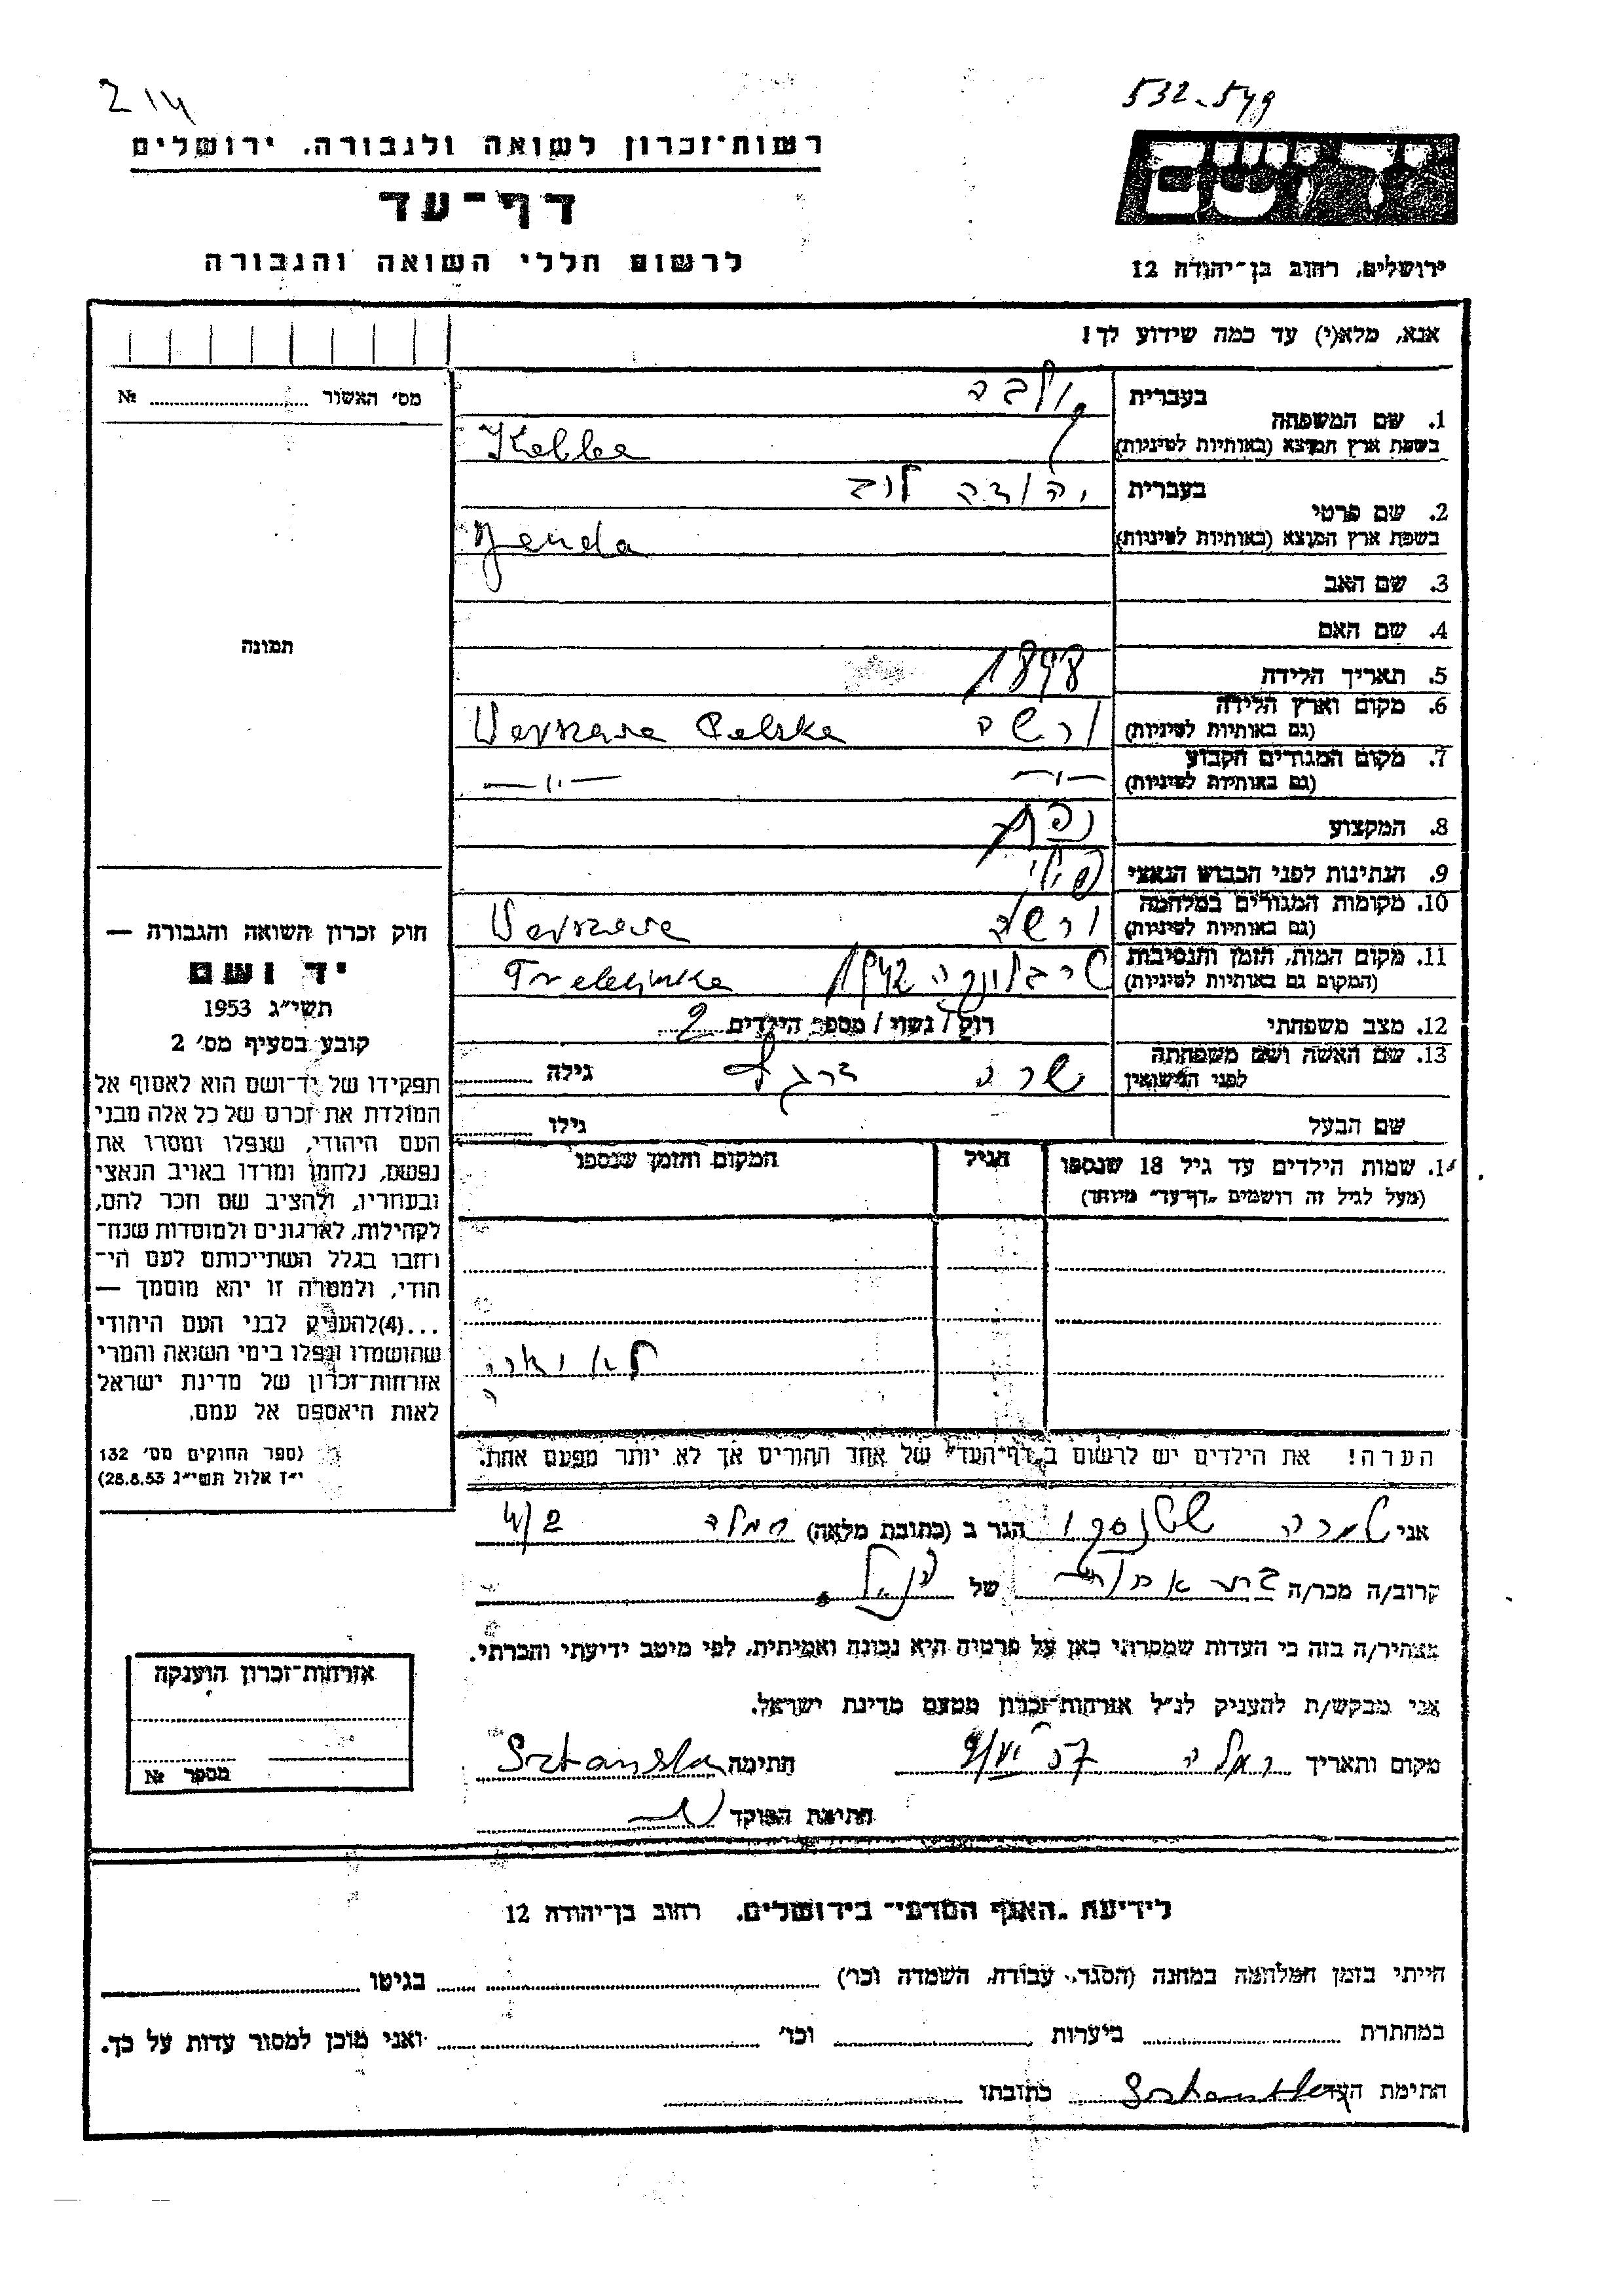 214
532-549
רשות־זכרון לשואה ולגבורה. ירושלים
יד ושם
דף־עד
לרשום חללי השואה והגבורה
ירושלים, רחוב בן־יהודה 12
אנא, מלא(י) עד כמה שידוע לך!
מס׳ האשור № 
תמונה
בעברית
1. שם המשפחה
בשפת ארץ המוצא (באותיות לטיניות)
בעברית יהודה לוב
2. שם פרטי
בשפת ארץ המוצא (באותיות לטיניות) Jenda
3. שם האב
4. שם האם
5. תאריך הלידה 1898
6. מקום וארץ הלידה
(גם באותיות לטיניות) ורשה Varszava Polska
7. מקום המגורים הקבוע
(גם באותיות לטיניות) —״— —״—
8. המקצוע
9. הנתינות לפני הכבוש הנאצי
10. מקומות המגורים במלחמה
(גם באותיות לטיניות) ורשה Varszava
11. מקום המות, הזמן והנסיבות
(המקום גם באותיות לטיניות) טרבלינקה 1942 Treblinka
12. מצב משפחתי רוק / נשוי / מספר הילדים 2
13. שם האשה ושם משפחתה
לפני הנישואין שרה גילה
שם הבעל גילו
חוק זכרון השואה והגבורה —
יד ושם
תשי״ג 1953
קובע בסעיף מס׳ 2
תפקידו של יד־ושם הוא לאסוף אל
המולדת את זכרם של כל אלה מבני
העם היהודי, שנפלו ומסרו את
נפשם, נלחמו ומרדו באויב הנאצי
ובעוזריו, ולהציב שם וזכר להם,
לקהילות, לארגונים ולמוסדות שנח־
רבו בגלל השתייכותם לעם הי־
הודי, ולמטרה זו יהא מוסמך —
...(4)להעניק לבני העם היהודי
שהושמדו ונפלו בימי השואה והמרי
אזרחות־זכרון של מדינת ישראל
לאות היאספם אל עמם.
(ספר החוקים מס׳ 132
י״ז אלול תשי״ג 28.8.53)
14. שמות הילדים עד גיל 18 שנספו
(מעל לגיל זה רושמים „דף־עד״ מיוחד)
הגיל
המקום והזמן שנספו
הערה! את הילדים יש לרשום ב„דף־העד״ של אחד ההורים אך לא יותר מפעם אחת.
אני הגר ב (כתובת מלאה)
קרוב/ה מכר/ה של
מצהיר/ה בזה כי העדות שמסרתי כאן על פרטיה היא נכונה ואמיתית, לפי מיטב ידיעתי והכרתי.
אני מבקש/ת להעניק לנ״ל אזרחות־זכרון מטעם מדינת ישראל.
מקום ותאריך חתימה
חתימת הפוקד
אזרחות־זכרון הוענקה
מספר №
לידיעת „האגף המדעי״ בירושלים. רחוב בן־יהודה 12
הייתי בזמן המלחמה במחנה (הסגר, עבודת, השמדה וכו׳) בגיטו
במחתרת ביערות וכו׳ ואני מוכן למסור עדות על כך.
חתימת העד כתובתו